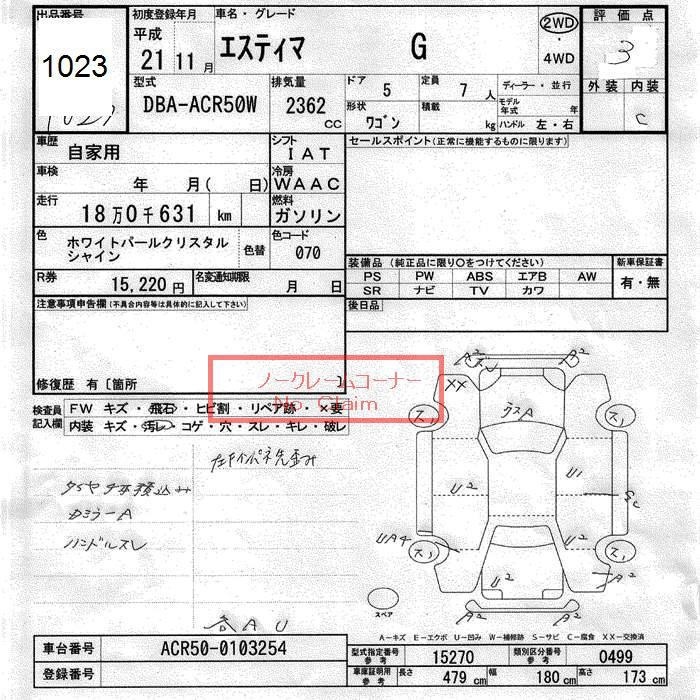 出品番号
1023
初度登録年月
平成
21 11月
車名・グレード
エスティマ G
2WD
・
4WD
評価点
3
外装 内装
C
型式
DBA-ACR50W
排気量
2362
CC
ドア
5
定員
7人
形状
ワゴン
積載
kg
ディーラー・並行
モデル年式 年
ハンドル 左・右
車歴
自家用
シフト
IAT
車検
年 月( 日)
冷房
WAAC
走行
18万0千631 km
燃料
ガソリン
色
ホワイトパールクリスタル
シャイン
色替
色コード
070
R券
15,220円
名変通知期限
月 日
セールスポイント(正常に機能するものに限ります)
装備品 (純正品に限り○をつけてください)
PS PW ABS エアB AW
SR ナビ TV カワ
新車保証書
有・無
後日品
注意事項申告欄(不具合内容等は具体的に記入して下さい)
修復歴 有〔箇所 〕
ノークレームコーナー
No. Claim
検査員
記入欄
FW キズ・飛石・ヒビ割・リペア跡・×要
内装 キズ・汚レ・コゲ・穴・スレ・キレ・破レ
ハンドルスレ
各AU
A2
A2
XX
ガラスA
U2
U1
UA4
U2
U2
A2
A2
A2
スペア
A-キズ E-エクボ U-凹み W-補修跡 S-サビ C-腐食 XX-交換済
車台番号
ACR50-0103254
登録番号
型式指定番号
参考
15270
類別区分番号
参考
0499
車庫証明用
参考
長さ
479 cm
幅
180 cm
高さ
173 cm